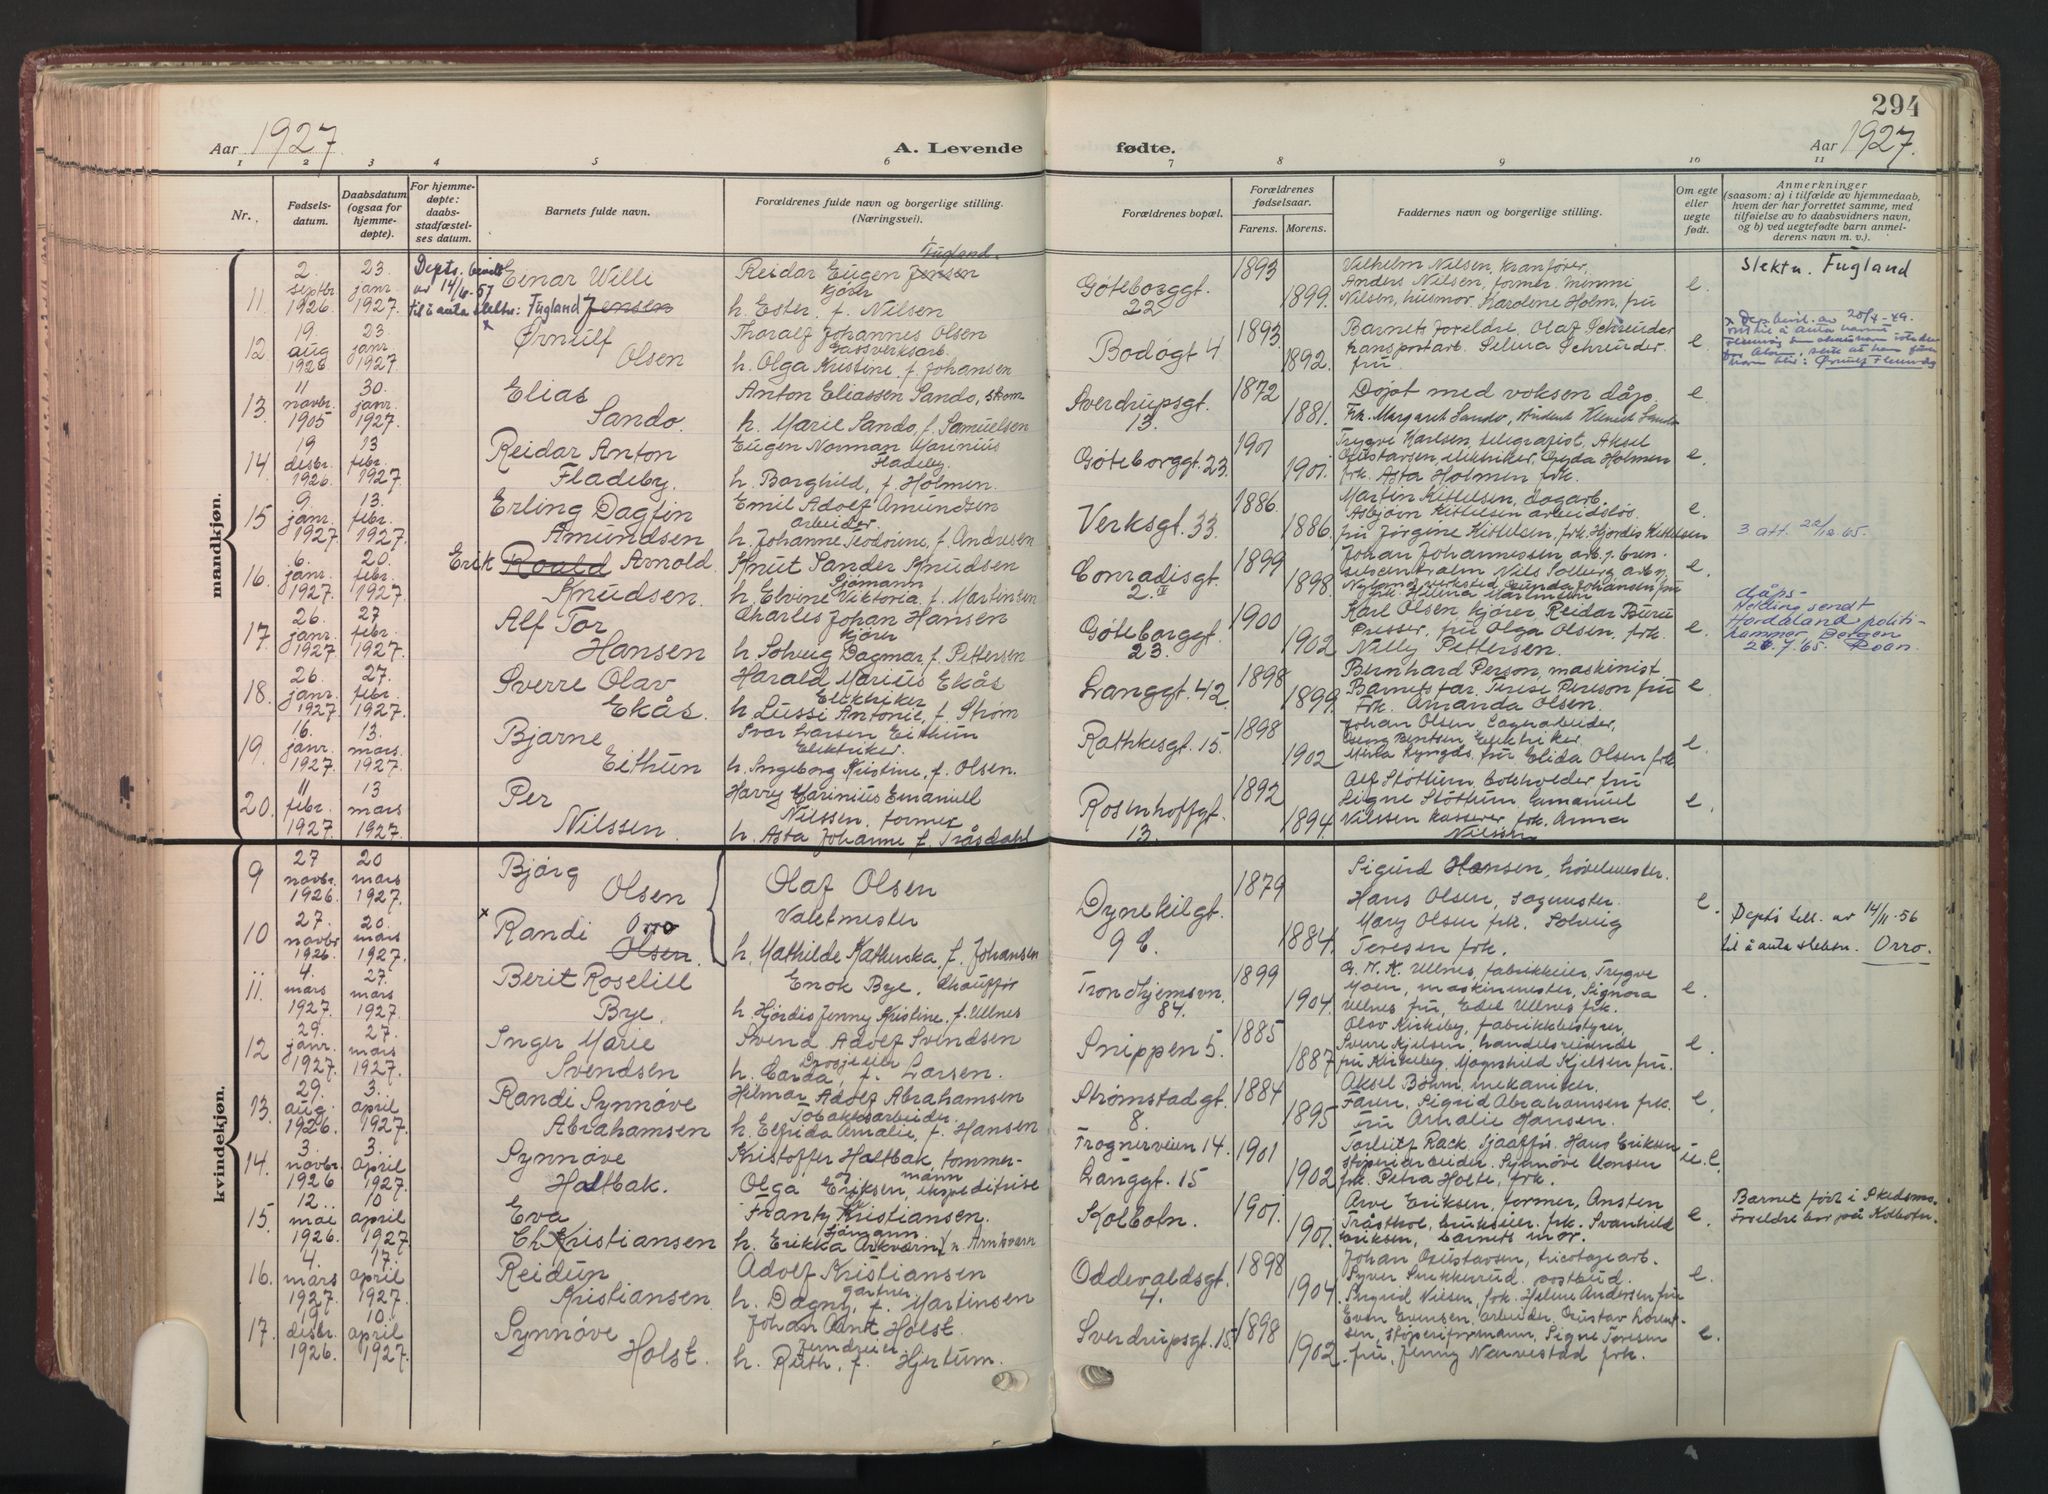 294
Aar 1927.
A. Levende
fødte.
Aar 1927.
1 2 3 4 5 6 7 8 9 10 11
Nr.
Fødsels-
datum.
Daabsdatum
(ogsaa for
hjemme-
døpte).
For hjemme-
døpte:
daabs-
stadfæstel-
ses datum.
Barnets fulde navn.
Forældrenes fulde navn og borgerlige stilling.
(Næringsvei).
Forældrenes bopæl.
Forældrenes
fødselsaar.
Farens. Morens.
Faddernes navn og borgerlige stilling.
Om egte
eller
uegte
født.
Anmerkninger
(saasom: a) i tilfælde av hjemmedaab,
hvem der har forrettet samme, med
tilføielse av to daabsvidners navn,
og b) ved uegtefødte barn anmel-
derens navn m. v.).
mandkjøn.
11
2. septbr 1926
23. janr. 1927.
Depts. bevill.
av 14/6-57
til å anta slektsn: Fugland
Einar Willi
Jensen
Fugland.
Reidar Eugen Jensen
kjører
h. Ester, f. Nilsen
Göteborggt.
22
1893
1899.
Vilhelm Nilsen, kranfører,
Anders Nilsen, former, Mimmi
Nilsen, husmor, Karolene Holm, fru
e.
Slektn. Fugland
12
19. aug 1926
23. janr. 1927.
Ørnulf
Olsen
Thoralf Johannes Olsen
Gassverksarb.
h. Olga Kristine, f. Johansen
Bodøgt 4
1893.
1892.
Barnets foreldre, Olaf Schreuder
transportarb. Selma Schreuder.
fru
e.
x Dep. bevil. av 20/4-49.
13.
11 novbr. 1905
30. janr. 1927.
Elias
Sando.
Anton Eliassen Sando, skom.
h. Marie Sando, f. Samuelsen
Sverdrupsgt.
13.
1872
1881.
Døpt med voksen dåp,
Frk. Margareth Sando,
e.
14.
19 desbr. 1926
13 febr. 1927.
Reidar Anton
Fladeby.
Eugen Norman Marinius
Fladeby.
h. Borghild, f. Holmen.
Göteborggt. 23.
1901
1901.
Trygve Karlsen, telegrafist, Aksel
Gustavsen, elektriker, Gyda Holmen
frk. Asta Holmen frk.
e.
15
9 janr. 1927.
13. febr. 1927.
Erling Dagfin
Amundsen
Emil Adolf Amundsen
arbeider.
h. Johanne Teodorine, f. Andresen
Verksgt. 33.
1886.
1886.
Martin Kittelsen, dagarb.
Asbjørn Kittelsen arbeidsløs.
fru Jørgine Kittelsen, frk. Hjordis Kittelsen
e.
3 att. 22/12-65.
16.
6. janr. 1927
20. febr. 1927
Erik Roald Arnold.
Knudsen.
Knut Sander Knudsen
Sjømann
h. Elvine Viktoria, f. Martinsen
Conradisgt.
2. II
1899
1898.
Johan Johannessen, arb.
Nils Solberg arb.
e.
17.
26. janr. 1927
27 febr. 1927.
Alf Tor
Hansen
Charles Johan Hansen
kjører
h. Solveig Dagmar, f. Pettersen
Göteborggt.
23.
1900
1902
Karl Olsen kjører, Reidar Buru
Presser, fru Olga Olsen, frk.
Nelly Pettersen.
e.
dåps-
melding sendt
Hordaland politi-
kammer, Bergen
18.
26. janr. 1927.
27. febr. 1927.
Sverre Olav
Ekås.
Harald Marius Ekås
Elektriker
h. Lussi Antonie, f. Strøm
Langgt. 42.
1898
1899.
Bernhard Person, maskinist.
Barnets far. Terese Person fru
Frk. Amanda Olsen.
e.
19.
16. janr. 1927.
13. mars 1927.
Bjarne
Eithun
Ivar Larsen Eithun
Elektriker.
h. Ingeborg Kristine, f. Olsen.
Rathkesgt. 15.
1898
1902
Johan Olsen Lagerarbeider,
Georg Berntsen, Elektriker
fru Elida Olsen frk.
e.
20.
11 febr. 1927.
13 mars 1927.
Per
Nilssen.
Harry Marinius Emanuel
Nilssen. former
h. Asta Johanne f. Tråsdahl
Rosenhoffgt.
13.
1892
1894.
Alf Støttum, bokholder fru
Signe Støttum, Emanuel
Nilssen kasserer frk. Anna
Nilssen
e.
kvindekjøn.
9
27 novbr. 1926
20 mars 1927.
Bjørg
Olsen
10
27 novbr 1926
20. mars 1927.
x Randi Orro
Olsen.
Olaf Olsen
Valetmester
h. Mathilde Kathinka, f. Johansen
Dynekilgt.
9 E.
1879
1884.
Sigurd Hansen, høvelmester.
Hans Olsen, sagmester.
Mary Olsen frk. Solveig
Teresen frk.
e.
Depts till. av 14/11-56
til å anta slektsn. Orro.
11.
4. mars 1927
27. mars 1927
Berit Roselill
Bye.
Enok Bye, Chauffør
h. Hjørdis Jenny Kristine, f. Ullnes
Trondhjemsvn.
84.
1899
1904.
O. M. K. Ullnes, fabrikkeier, Trygve
Moen, maskinmester, Signora
Ullnes fru, Edel Ullnes frk.
e.
12
29. janr. 1927.
27. mars 1927.
Inger Marie
Svendsen
Svend Adolf Svendsen
Drosjeeier
h. Carda, f. Larsen.
Snippen 5.
1885
1887
Olav Kirkeby, fabrikkbestyrer,
Sverre Kjelsen, handelsreisende
fru Kirkeby, Magnhild Kjelsen fru.
e.
13.
29. aug. 1926.
3. april 1927.
Randi Synnøve
Abrahamsen
Hilmar Adolf Abrahamsen
Tobakksarbeider.
h. Elfrida Amalie, f. Hansen
Strømstadgt.
8.
1884
1895
Aksel Bøhm mekaniker.
Faren, Sigrid Abrahamsen frk.
Fru Amalie Hansen.
e.
14.
3. novbr. 1926
3. april 1927.
Synnøve
Haltbak.
Kristoffer Haltbak, tømmer-
mann
og
Olga Eriksen, ekspeditrise
Frognerveien 14.
Langgt. 15
1901
1902.
Hans Eriksen
støperiarbeider. Synnøve Monsen
frk. Petra Holte, frk.
u. e.
15.
12. mai 1926.
10 april 1927
Eva
Kristiansen
Frantz Kristiansen.
Sjømann
h. Erikka Arkværn
Kolbotn.
1901.
1901.
Arve Eriksen, former, Ansten
Tråsthol, brukseier. frk. Svanhild
Eriksen, barnets mor.
e.
Barnet født i Skedsmo.
Foreldre bor på Kolbotn.
16.
4. mars 1927.
17. april 1927.
Reidun
Kristiansen.
Adolf Kristiansen
gartner
h. Dagny, f. Martinsen
Oddevaldsgt.
4.
1898
1904.
Johan Gustavsen, tricotagearb.
Syver postbud.
Ingrid Nilsen, frk. Helene Andersen fru
e.
17.
19. desbr. 1926.
10. april 1927.
Synnøve
Holst.
Johan Arnt Holst.
Jerndreier
h. Ruth, f. Hjertum.
Sverdrupsgt. 15
1898
1902.
Even Evensen, arbeider, Gustav Lorent-
sen, støperiformann, Signe Toresen
fru, Jenny Narvestad frk.
e.